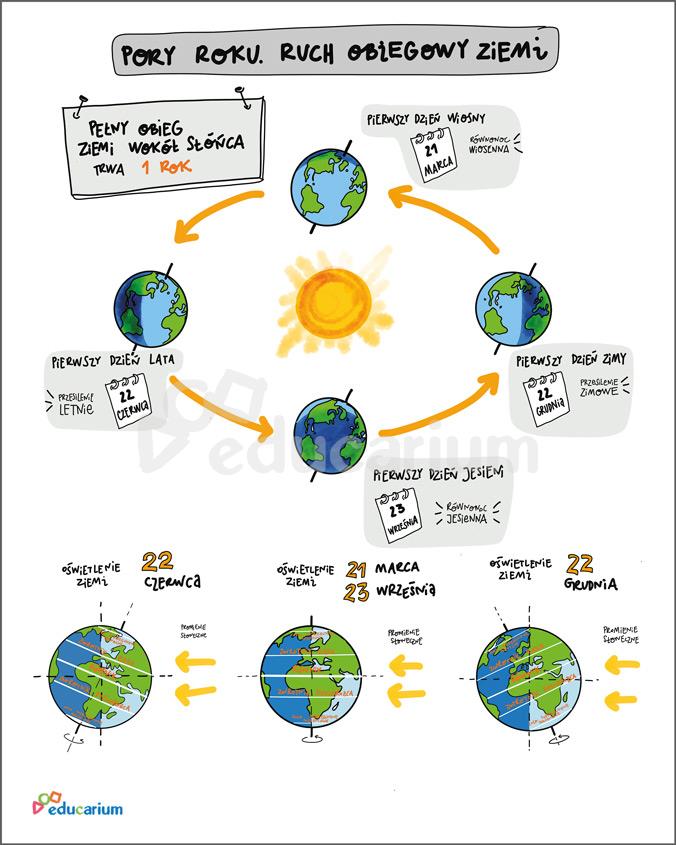 PORY ROKU. RUCH OBIEGOWY ZIEMI
PEŁNY OBIEG
ZIEMI WOKÓŁ SŁOŃCA
TRWA 1 ROK
PIERWSZY DZIEŃ WIOSNY
21
MARCA
RÓWNONOC
WIOSENNA
PIERWSZY DZIEŃ LATA
PRZESILENIE
LETNIE
22
CZERWCA
PIERWSZY DZIEŃ ZIMY
22
GRUDNIA
PRZESILENIE
ZIMOWE
educarium
PIERWSZY DZIEŃ JESIENI
23
WRZEŚNIA
RÓWNONOC
JESIENNA
OŚWIETLENIE
ZIEMI
22
CZERWCA
PROMIENIE
SŁONECZNE
OŚWIETLENIE
ZIEMI
21 MARCA
23 WRZEŚNIA
PROMIENIE
SŁONECZNE
OŚWIETLENIE
ZIEMI
22
GRUDNIA
PROMIENIE
SŁONECZNE
educarium